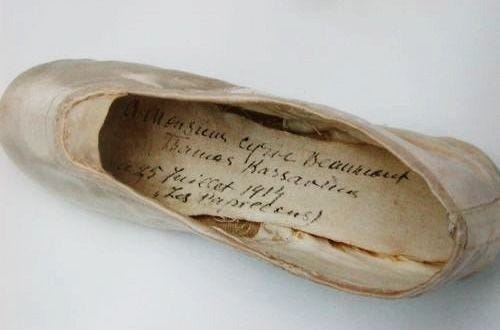 A Monsieur Cyril Beaumont
Thamar Karsavina
25 Juillet 1914
(Les Papillons)